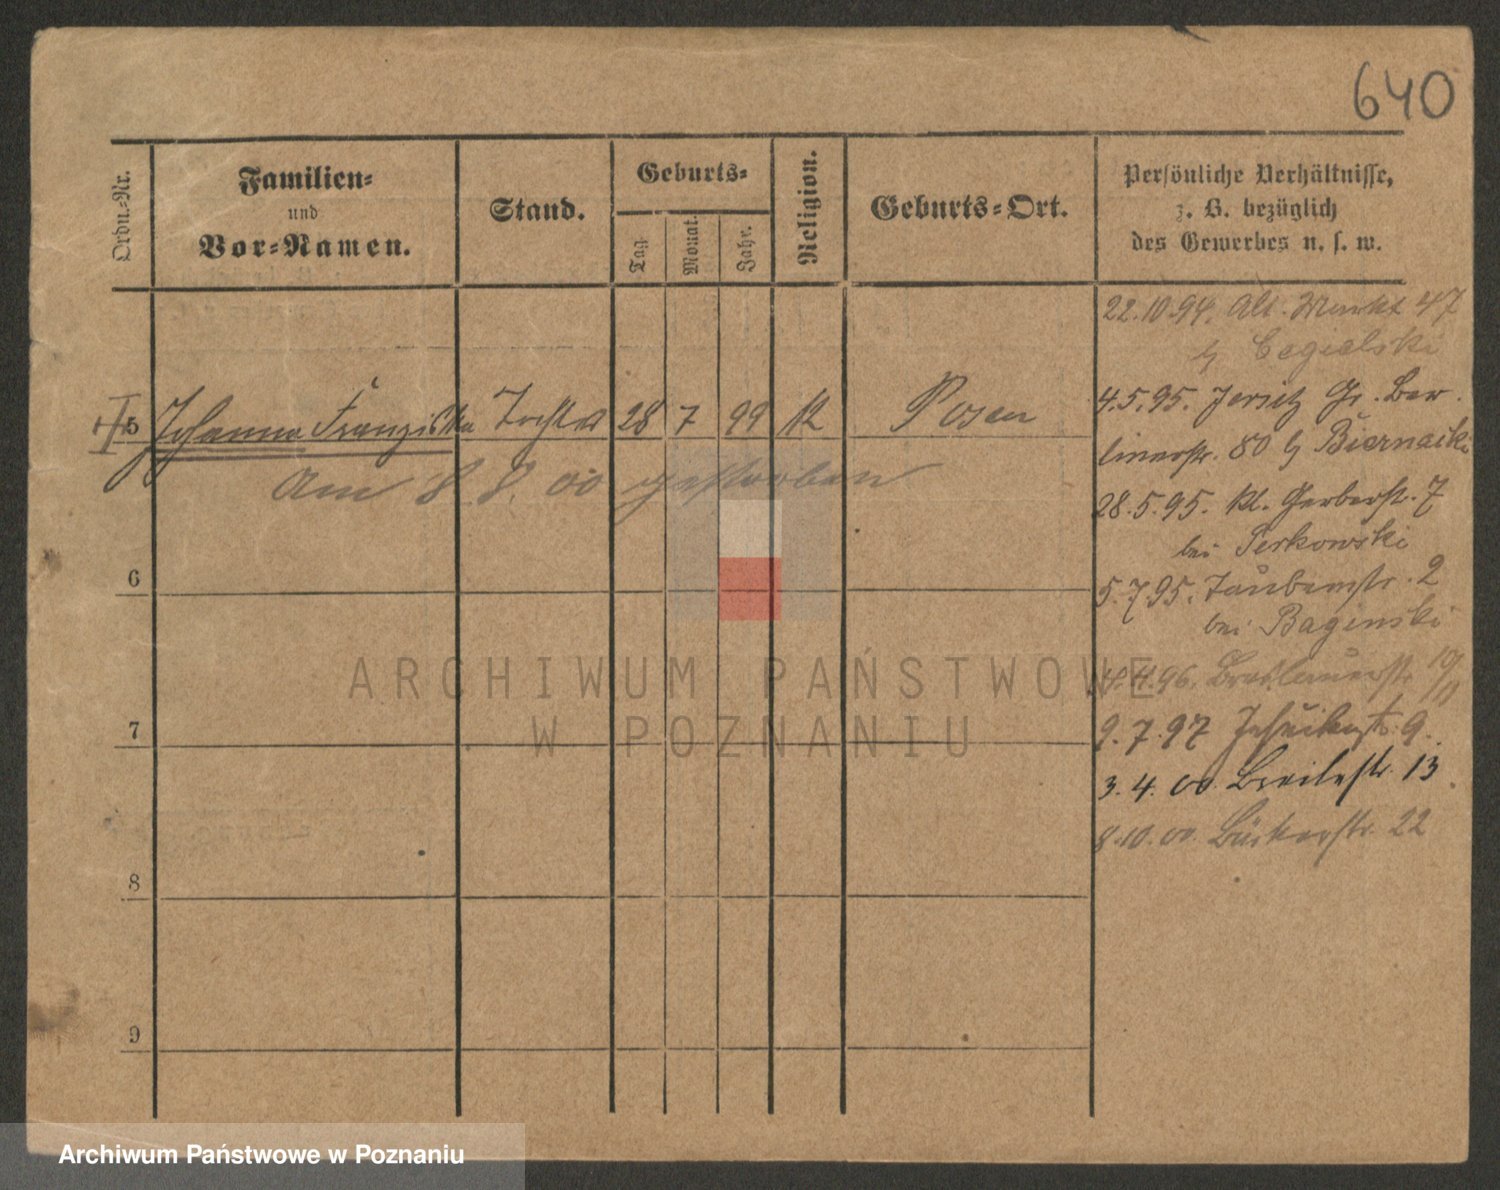 640
Ordn.-Nr.
Familien-
und
Vor-Namen.
Stand.
Geburts-
Tag
Monat.
Jahr.
Religion.
Geburts-Ort.
Persönliche Verhältnisse,
z. B. bezüglich
des Gewerbes u. s. w.
22.10.94. Alt. Markt 47
b/ Cegielski
5 Johanna Franziska Tochter 28 7 99 K Posen
am 8. 8. 00 gestorben
4.5.95. Jersitz Gr. Ber.
linerstr. 80 b/ Biernacki
28.5.95. Kl. Gerberst. 7
bei Perkowski
5.7.95. Taubenstr. 2
bei Baginski
4.96. Breslauerstr. 10/11
9.7.97 Jesuitenstr. 9.
3.4.00. Breitestr. 13
8.10.00. Bäckerstr. 22
6
7
8
9
ARCHIWUM PAŃSTWOWE
W POZNANIU
Archiwum Państwowe w Poznaniu